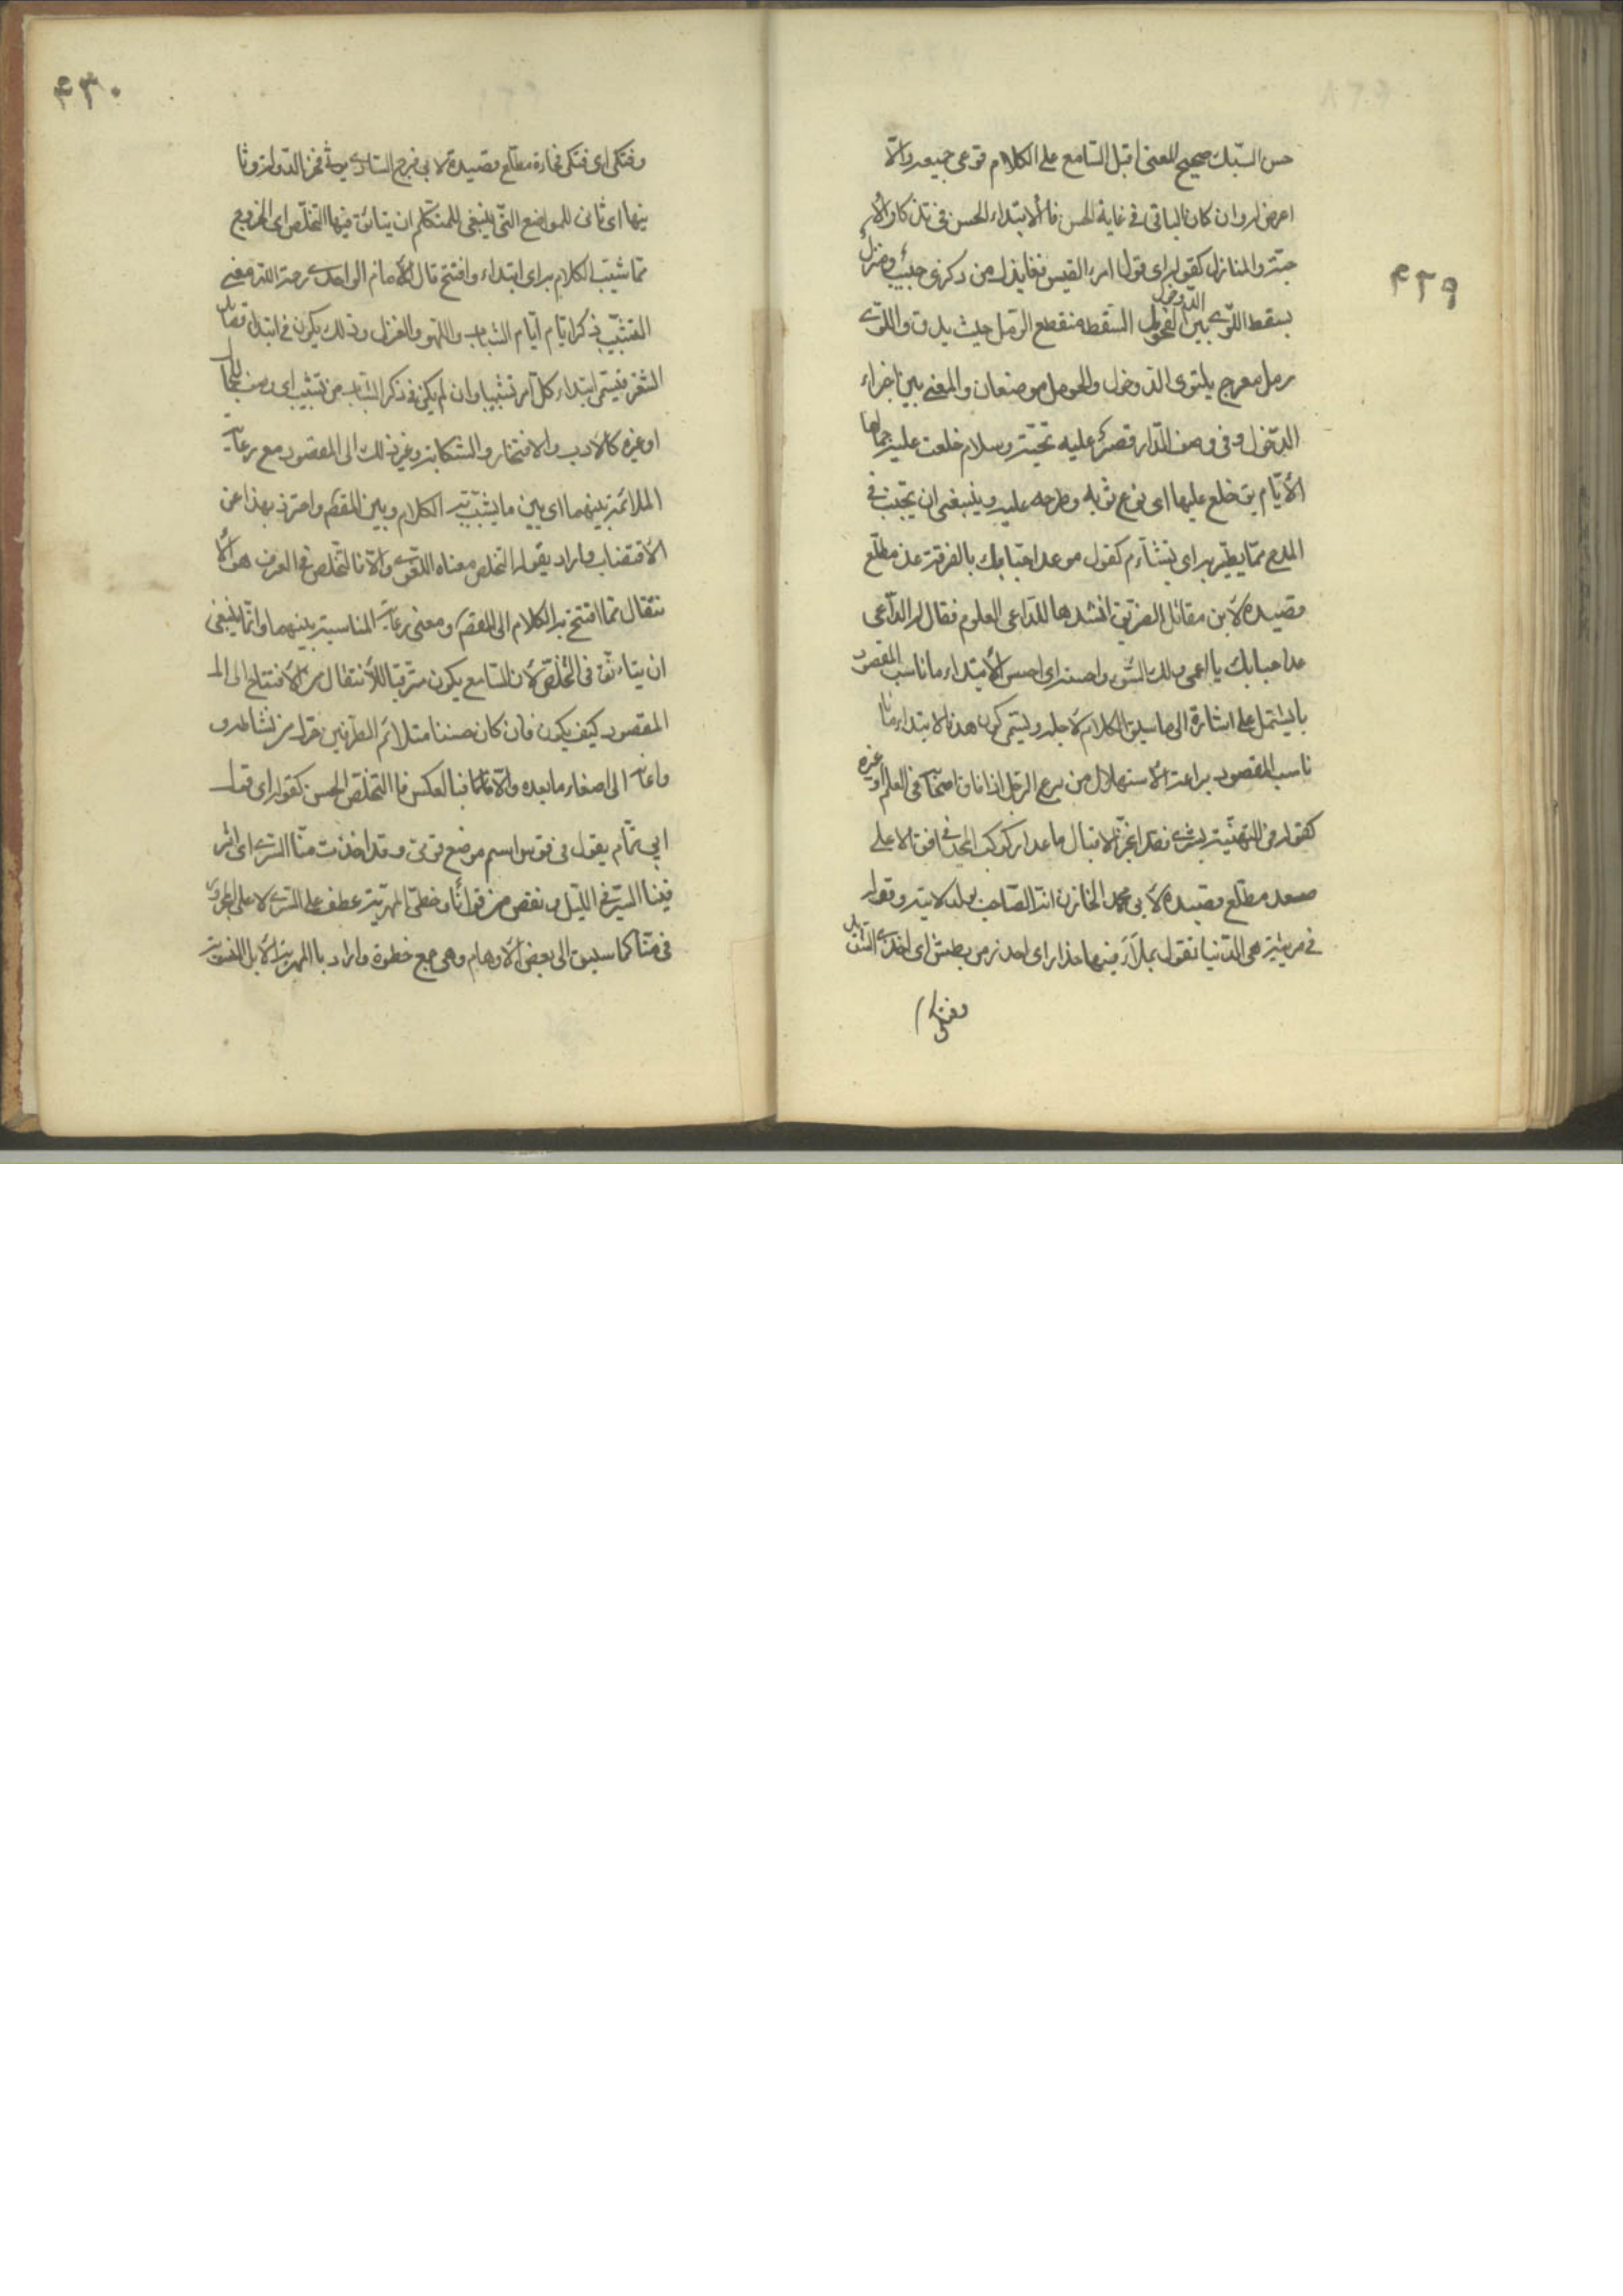 ٤٢٩
حسن السبك صحيح المعنى اقبل السامع على الكلام فوعى جميعه والّا
اعرض عنه وان كان الباقى فى غاية الحسن فالابتداء الحسن فى تذكار الا
حبّة والمنازل كقوله اى قول امرء القيس قفا نبك من ذكرى حبيب ومنزل
بسقط اللوى بين الدخول فحومل السقط منقطع الرمل حيث يدق واللوى
رمل معوج يلتوى الدخول والحومل موضعان والمعنى بين اجزاء
الدّخول وفى وصف الدّار قصر عليه تحيّة وسلام خلعت عليه جمالها
الأيّام يق خلع عليها اى نزع ثوبه وطرحه عليه وينبغى ان يجتنب فى
المدح ممّا يطيّر به اى يتشأءم كقول موعد احبابك بالفرقة غد مطلع
قصيدة لابن مقاتل الضرير انشدها للدّاعى العلوم فقال له الدّاعى
موعد احبابك يا اعمى ولك السّوء واحسنه اى احسن الأبتداء ما ناسب المقصود
بان يشتمل على اشارة الى ما سيق الكلام لاجله ويسمى كون هذه الابتداء ما
ناسب المقصود براعة الأستهلال من برع الرجل اذا فاق اصحابه فى العلم او غيره
كقوله فى التهنئية بشرى فقد انجز الاقبال ما عدا وكوكب المجد فى افق الاعلى
صعد مطلع قصيدة لابى محمد الخازن انتا الصّاحب بولد لابنته وقوله
فى مرثية هى الدّنيا تقول بملأ فيها حذار اى احذر من بطش اى اخذى الشديد
وفتكى
٤٣٠
وفتكى اى فتكى فجاءة مطلع قصيدة لابى فرج الساوى يرثى فخر الدولة وثا
نيها اى ثانى المواضع التّى ينبغى للمتكلم ان يتأنق فيها التخلّص اى الخروج
ممّا شيّب الكلام به اى ابتداء وافتتح قال الأمام الواحدى رحمة الله معنى
التشبيب ذكر ايّام ايّام الشباب واللهو والغزل وذلك يكون فى ابتداء قصايد
الشعر فيسمى ابتداء كلّ امر تشبيبا وان لم يكن فى ذكر الشباب من تشبيب اى وصف للجمال
او غيره كالأدب والافتخار والشكاية وغير ذلك الى المقصود مع رعاية
الملائمة بينهما اى بين ما يشبّب به الكلام وبين المقصم واحترز بهذا عن
الأقتضاب واراد بقوله التخلص معناه اللغوى والّا فالتخلص فى العرف هو الأ
نتقال ممّا افتتح به الكلام الى المقصم ومعنى رعاية المناسبة بينهما وانّما ينبغى
ان يتاءنق فى التخلّص لأن السّامع يكون مترقّبا للأنتقال من الأفتتاح الى الـ
المقصود كيف يكون فان كان حسنا متلائم الطرفين حرّك من نشاطه و
واعان الى اصغاء ما بعده والّا فبالعكس فالتخلّص الحسن كقوله اى قول
ابى تمّام يقول فى قومس اسم موضع قومى وقد اخذت منّا السّرى اى اثر
فينا السّير فى الليل ونقص من قوانا وخطى المهريّة عطف على السّرى لا على المجرور
فى منّا كما سبق الى بعض الأوهام وهى جمع خطوة واراد بالمهريّة الأبل المنسوبة